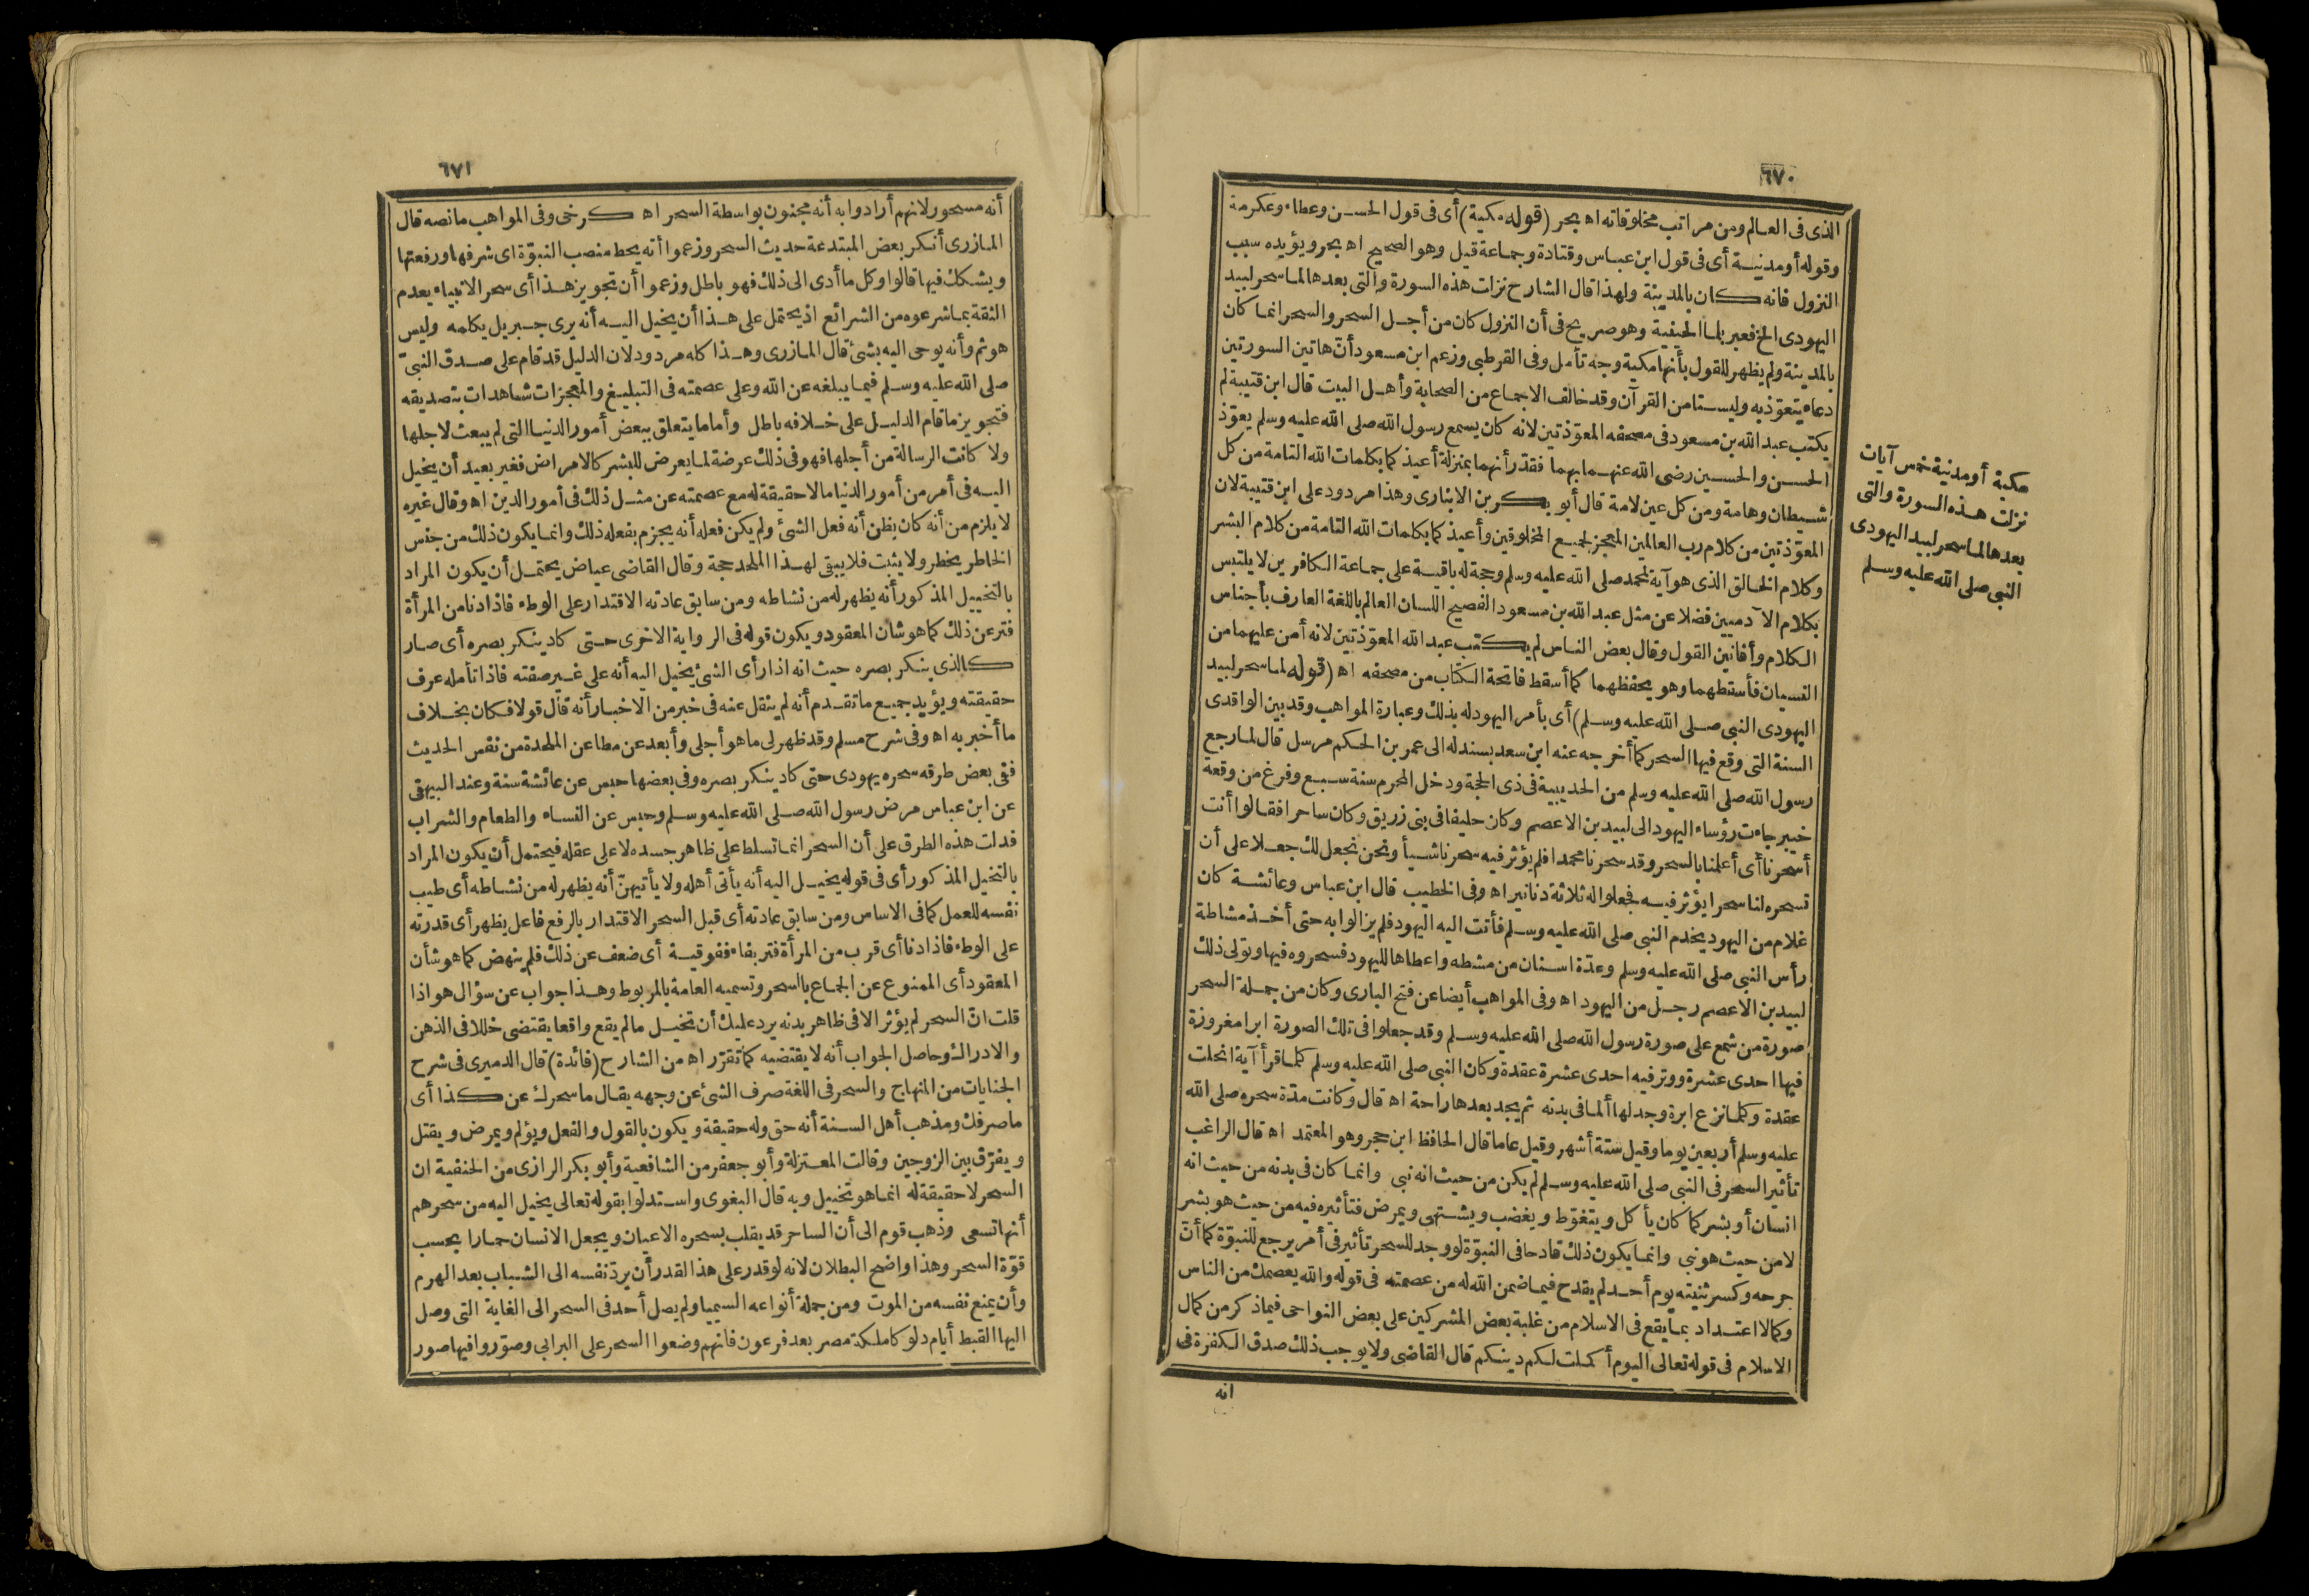 ٦٧٠
الذى فى العالم ومن مراتب مخلوقاته اه بحر (قوله مكية) أى فى قول الحسن وعطاء وعكرمة
وقوله أومدنية أى فى قول ابن عباس وقتادة وجماعة قيل وهو الصحيح اه بحر ويؤيده سبب
النزول فانه كان بالمدينة ولهذا قال الشارح نزلت هذه السورة والتى بعدها لما سحر لبيد
اليهودى الخ فعبر بلما الحينية وهو صريح فى أن النزول كان من أجل السحر والسحر انما كان
بالمدينة ولم يظهر للقول بأنها مكية وجه تأمل وفى القرطبى وزعم ابن مسعود أن هاتين السورتين
دعاء يتعوّذ به وليستا من القرآن وقد خالف الاجماع من الصحابة وأهل البيت قال ابن قتيبة لم
يكتب عبد الله بن مسعود فى مصحفه المعوّذتين لانه كان يسمع رسول الله صلى الله عليه وسلم يعوّذ
الحسن والحسين رضى الله عنهما بهما فقدّر أنهما بمنزلة أعيذ كما بكلمات الله التامة من كل
شيطان وهامة ومن كل عين لامة قال أبو بكر بن الانبارى وهذا مردود على ابن قتيبة لان
المعوّذتين من كلام رب العالمين المعجز لجميع المخلوقين وأعيذ كما بكلمات الله التامة من كلام البشر
وكلام الخالق الذى هو آية لمحمد صلى الله عليه وسلم وحجة له باقية على جماعة الكافرين لا يلتبس
بكلام الآدميين فضلا عن مثل عبد الله بن مسعود الفصيح اللسان العالم باللغة العارف بأجناس
الكلام وأفانين القول وقال بعض الناس لم يكتب عبد الله المعوّذتين لانه أمن عليهما من
النسيان فأسقطهما وهو يحفظهما كما أسقط فاتحة الكتاب من مصحفه اه (قوله لما سحر لبيد
اليهودى النبى صلى الله عليه وسلم) أى بأمر اليهود له بذلك وعبارة المواهب وقد بين الواقدى
السنة التى وقع فيها السحر كما أخرجه عنه ابن سعد بسند له الى عمر بن الحكم مرسل قال لما رجع
رسول الله صلى الله عليه وسلم من الحديبية فى ذى الحجة ودخل المحرم سنة سبع وفرغ من وقعة
خيبر جاءت رؤساء اليهود الى لبيد بن الاعصم وكان حليفا فى بنى زريق وكان ساحرا فقالوا أنت
أسحرنا أى أعلمنا بالسحر وقد سحرنا محمدا فلم يؤثر فيه سحرنا شيأ ونحن نجعل لك جعلا على أن
تسحره لنا سحرا يؤثر فيه فجعلوا له ثلاثة دنانير اه وفى الخطيب قال ابن عباس وعائشة كان
غلام من اليهود يخدم النبى صلى الله عليه وسلم فأتت اليه اليهود فلم يزالوا به حتى أخذ مشاطة
رأس النبى صلى الله عليه وسلم وعدّة اسنان من مشطه واعطاها لليهود فسحروه فيها وتولى ذلك
لبيد بن الاعصم رجل من اليهود اه وفى المواهب أيضا عن فتح البارى وكان من جملة السحر
صورة من شمع على صورة رسول الله صلى الله عليه وسلم وقد جعلوا فى تلك الصورة ابرا مغروزة
فيها احدى عشرة ووتر فيه احدى عشرة عقدة وكان النبى صلى الله عليه وسلم كلما قرأ آية انحلت
عقدة وكلما نزع ابرة وجد لها ألما فى بدنه ثم يجد بعدها راحة اه قال وكانت مدّة سحره صلى الله
عليه وسلم أربعين يوما وقيل ستة أشهر وقيل عاما قال الحافظ ابن حجر وهو المعتمد اه قال الراغب
تأثير السحر فى النبى صلى الله عليه وسلم لم يكن من حيث انه نبى وانما كان فى بدنه من حيث انه
انسان أو بشر كما كان يأكل ويتغوّط ويغضب ويشتهى ويمرض فتأثيره فيه من حيث هو بشر
لا من حيث هو نبى وانما يكون ذلك قادحا فى النبوّة لو وجد للسحر تأثير فى أمر يرجع للنبوّة كما أنّ
جرحه وكسر ثنيته يوم أحد لم يقدح فيما ضمن الله له من عصمته فى قوله والله يعصمك من الناس
وكما لا اعتداد بما يقع فى الاسلام من غلبة بعض المشركين على بعض النواحى فيما ذكر من كمال
الاسلام فى قوله تعالى اليوم أكملت لكم دينكم قال القاضى ولا يوجب ذلك صدق الكفرة فى
انه
مكية أومدنية خمس آيات
نزلت هذه السورة والتى
بعدها لما سحر لبيد اليهودى
النبى صلى الله عليه وسلم
٦٧١
أنه مسحور لانهم أرادوا به أنه مجنون بواسطة السحر اه كرخى وفى المواهب مانصه قال
المازرى أنكر بعض المبتدعة حديث السحر وزعموا أنه يحط منصب النبوّة اى شرفها ورفعتها
ويشكك فيها قالوا وكل ما أدى الى ذلك فهو باطل وزعموا أن تجويز هذا أى سحر الانبياء يعدم
الثقة بما شرعوه من الشرائع اذ يحتمل على هذا أن يخيل اليه أنه يرى جبريل يكلمه وليس
هو ثم وأنه يوحى اليه بشئ قال المازرى وهذا كله مردود لان الدليل قد قام على صدق النبىّ
صلى الله عليه وسلم فيما يبلغه عن الله وعلى عصمته فى التبليغ والمعجزات شاهدات بتصديقه
فتجويز ما قام الدليل على خلافه باطل وأما ما يتعلق ببعض أمور الدنيا التى لم يبعث لاجلها
ولا كانت الرسالة من أجلها فهو فى ذلك عرضة لما يعرض للبشر كالامراض فغير بعيد أن يخيل
اليه فى أمر من أمور الدنيا مالا حقيقة له مع عصمته عن مثل ذلك فى أمور الدين اه وقال غيره
لا يلزم من أنه كان يظن أنه فعل الشئ ولم يكن فعله أنه يجزم بفعله ذلك وانما يكون ذلك من جنس
الخاطر يخطر ولا يثبت فلا يبقى لهذا الملحد حجة وقال القاضى عياض يحتمل أن يكون المراد
بالتخييل المذكور أنه يظهر له من نشاطه ومن سابق عادته الاقتدار على الوطء فاذا دنا من المرأة
فتر عن ذلك كما هو شان المعقود ويكون قوله فى الرواية الاخرى حتى كاد ينكر بصره أى صار
كالذى ينكر بصره حيث انه اذا رأى الشئ يخيل اليه أنه على غير صفته فاذا تأمله عرف
حقيقته ويؤيد جميع ما تقدم أنه لم ينقل عنه فى خبر من الاخبار أنه قال قولا فكان بخلاف
ما أخبر به اه وفى شرح مسلم وقد ظهر لى ما هو أجلى وأبعد عن مطاعن الملحدة من نفس الحديث
ففى بعض طرقه سحره يهودى حتى كاد ينكر بصره وفى بعضها حبس عن عائشة سنة وعند البيهقى
عن ابن عباس مرض رسول الله صلى الله عليه وسلم وحبس عن النساء والطعام والشراب
فدلت هذه الطرق على أن السحر انما تسلط على ظاهر جسده لا على عقله فيحتمل أن يكون المراد
بالتخيل المذكور أى فى قوله يخيل اليه أنه يأتى أهله ولا يأتيهنّ أنه يظهر له من نشاطه أى طيب
نفسه للعمل كما فى الاساس ومن سابق عادته أى قبل السحر الاقتدار بالرفع فاعل يظهر أى قدرته
على الوطء فاذا دنا أى قرب من المرأة فتر بفاء ففوقية أى ضعف عن ذلك فلم ينهض كما هو شأن
المعقود أى الممنوع عن الجماع بالسحر وتسميه العامة بالمربوط وهذا جواب عن سؤال هو اذا
قلت انّ السحر لم يؤثر الا فى ظاهر بدنه يرد عليك أن تخيل مالم يقع واقعا يقتضى خللا فى الذهن
والادراك وحاصل الجواب أنه لا يقتضيه كما تقرّر اه من الشارح (فائدة) قال الدميرى فى شرح
الجنايات من المنهاج والسحر فى اللغة صرف الشئ عن وجهه يقال ما سحرك عن كذا أى
ما صرفك ومذهب أهل السنة أنه حق وله حقيقة ويكون بالقول والفعل ويؤلم ويمرض ويقتل
ويفرّق بين الزوجين وقالت المعتزلة وأبو جعفر من الشافعية وأبو بكر الرازى من الحنفية ان
السحر لا حقيقة له انما هو تخييل وبه قال البغوى واستدلوا بقوله تعالى يخيل اليه من سحرهم
أنها تسعى وذهب قوم الى أن الساحر قد يقلب بسحره الاعيان ويجعل الانسان حمارا بحسب
قوّة السحر وهذا واضح البطلان لانه لو قدر على هذا القدر أن يردّ نفسه الى الشباب بعد الهرم
وأن يمنع نفسه من الموت ومن جملة أنواعه السيميا ولم يصل أحد فى السحر الى الغاية التى وصل
اليها القبط أيام دلوكا ملكة مصر بعد فرعون فانهم وضعوا السحر على البرابى وصوّروا فيها صور